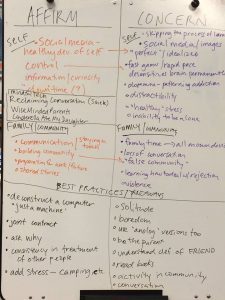 AFFIRM
SELF
social media -
healthy dev of self
control
information/curiosity
down time (?)
Mind & Tech
Reclaiming Conversation (Turkle)
WiseMindedParents
Cinderella Ate My Daughter
FAMILY/COMMUNITY
communication/staying in touch
building community
preparation for work/future
shared stories
CONCERN
SELF
skipping the process of learning
social media/images
"perfect"/idealized
fast game/rapid pace
desensitizes brain permanently
dopamine - patterning addiction
distractibility
healthy stress
inability to be alone
FAMILY/COMMUNITY
family time
loss of conversation
"false community"
learning hardened w/rejection
violence
BEST PRACTICES/TAKEAWAYS
deconstruct a computer
"just a machine"
joint contract
ask why
consistency in treatment
of other people
add stress - camping, etc
solitude
boredom
use "analog" versions too
be the parent
understand def of FRIEND
read books
activity in community
conversation